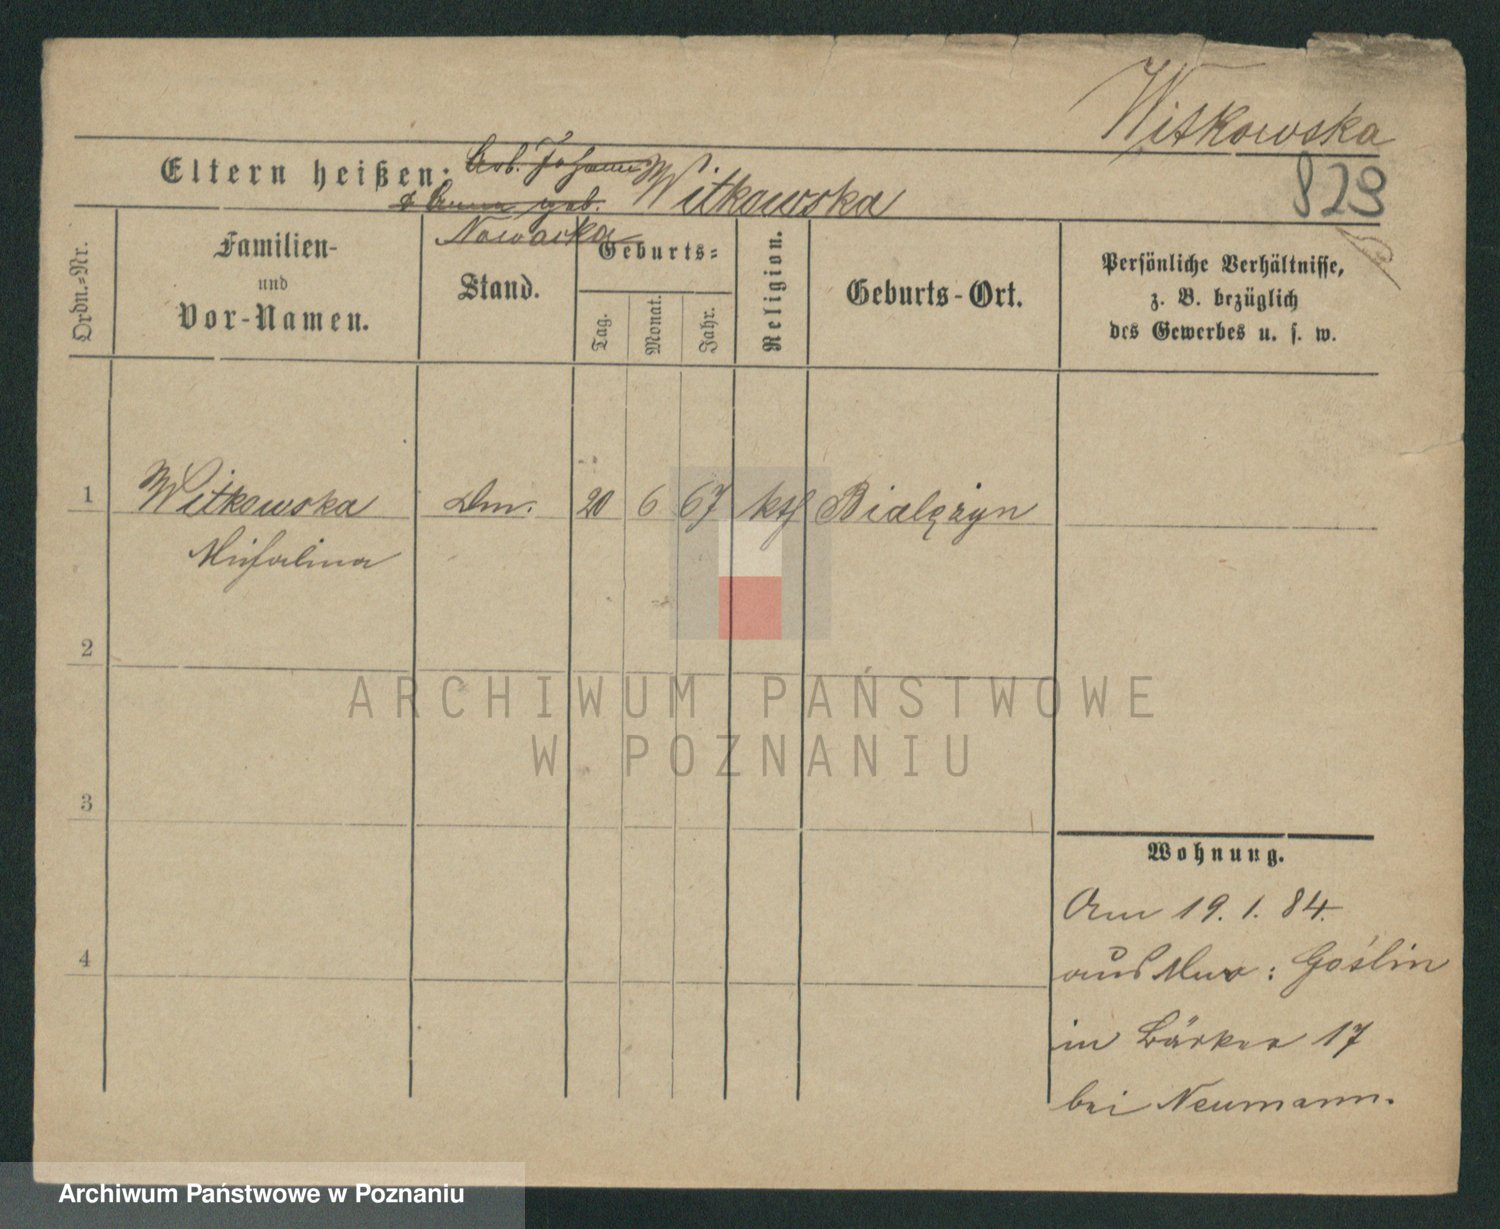 Witkowska
823
Eltern heißen: Arb. Johann Witkowska
& Anna geb.
Nowacka
Ordn.=Nr.
Familien-
und
Vor-Namen.
Stand.
Geburts=
Tag.
Monat.
Jahr.
Religion.
Geburts-Ort.
Persönliche Verhältnisse,
z. B. bezüglich
des Gewerbes u. s. w.
1 Witkowska Dm. 20 6 67 kth Bialężyn
Michalina
2
3
4
Wohnung.
Am 19. 1. 84.
aus Mur: Goślin
in Bärker 17
bei Neumann.
ARCHIWUM PAŃSTWOWE
W POZNANIU
Archiwum Państwowe w Poznaniu